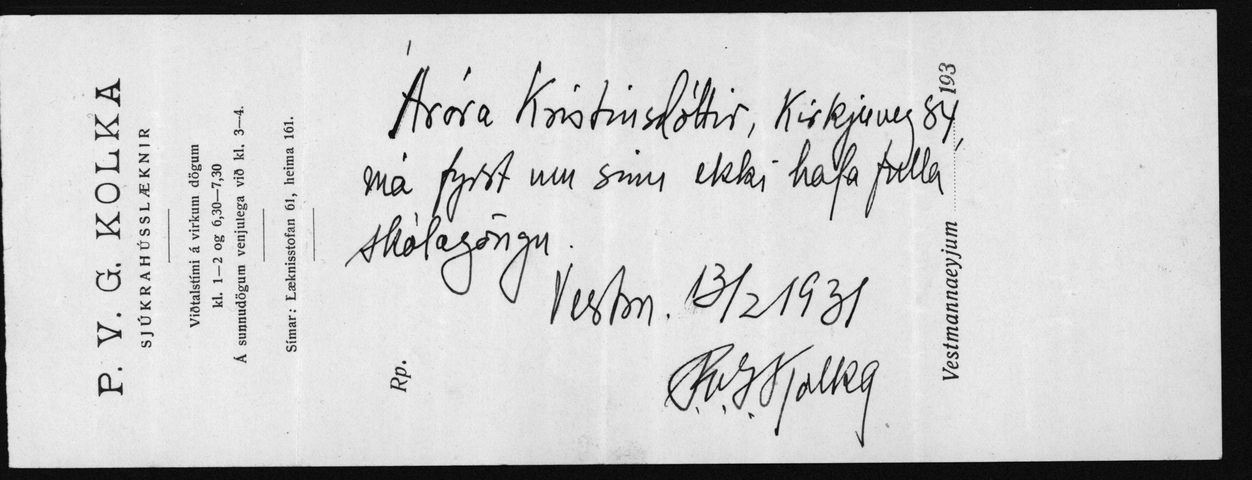 P. V. G. KOLKA
SJÚKRAHÚSSLÆKNIR
Viðtalstími á virkum dögum
kl. 1—2 og 6,30—7,30
Á sunnudögum venjulega við kl. 3—4.
Símar: Læknisstofan 61, heima 161.
Rp.
Vestmannaeyjum 193
Áróra Kristinsdóttir, Kirkjuveg 84,
má fyrst um sinn ekki hafa fulla
skólagöngu.
Vestm. 13/2 1931
P.V.G. Kolka